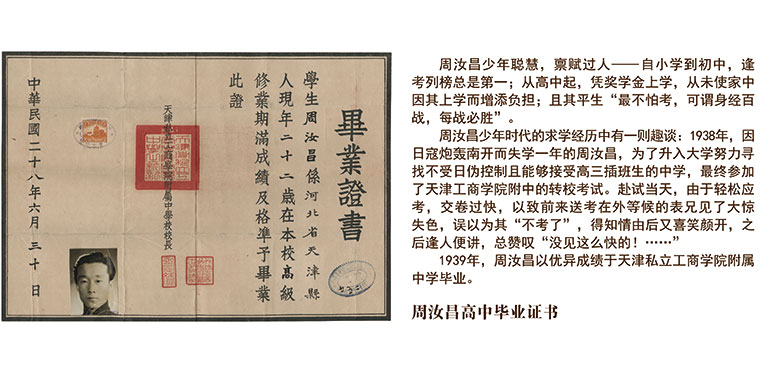 畢業證書
學生周汝昌係河北省天津縣
人現年二十二歲在本校高級
修業期滿成績及格準予畢業
此證
天津私立工商學院附屬中學校校長
中華民國二十八年六月三十日
周汝昌少年聪慧，禀赋过人——自小学到初中，逢
考列榜总是第一；从高中起，凭奖学金上学，从未使家中
因其上学而增添负担；且其平生“最不怕考，可谓身经百
战，每战必胜”。
周汝昌少年时代的求学经历中有一则趣谈：1938年，因
日寇炮轰南开而失学一年的周汝昌，为了升入大学努力寻
找不受日伪控制且能够接受高三插班生的中学，最终参加
了天津工商学院附中的转校考试。赴试当天，由于轻松应
考，交卷过快，以致前来送考在外等候的表兄见了大惊
失色，误以为其“不考了”，得知情由后又喜笑颜开，之
后逢人便讲，总赞叹“没见这么快的！……”
1939年，周汝昌以优异成绩于天津私立工商学院附属
中学毕业。
周汝昌高中毕业证书